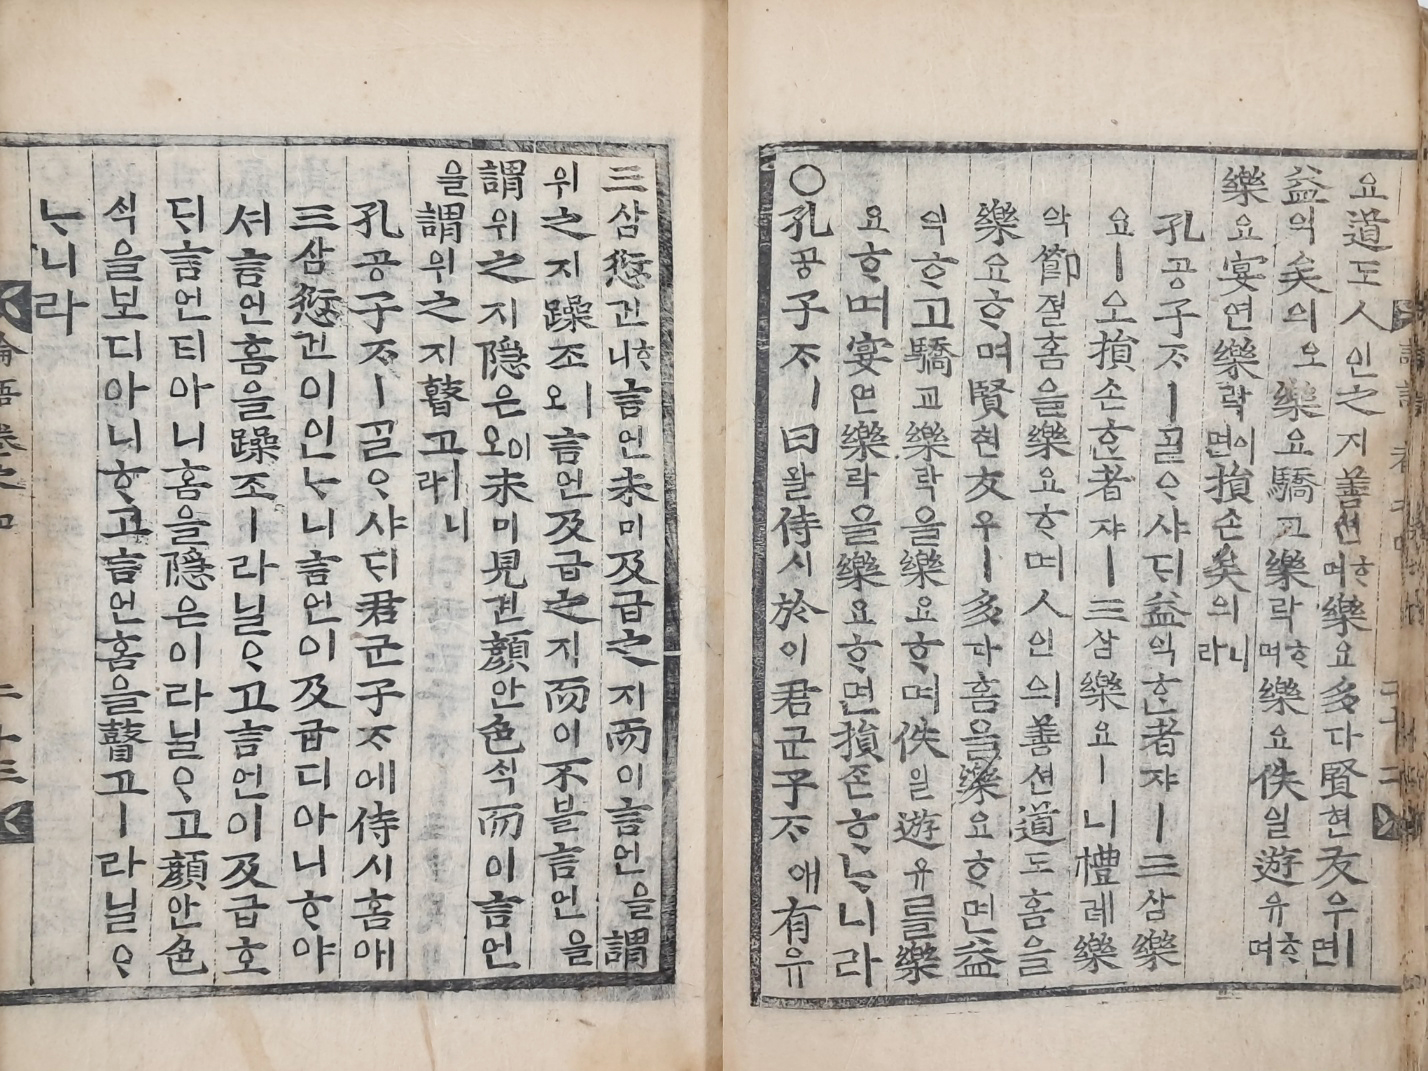 요道도人인之지善션ᄒᆞ며樂요多다賢현友우ㅣ면
益익矣의오樂요驕교樂락ᄒᆞ며樂요佚일遊유ᄒᆞ며
樂요宴연樂락이면損손矣의니라
孔공子ᄌᆞㅣᄀᆞᆯᄋᆞ샤ᄃᆡ益익ᄒᆞᆫ者쟈ㅣ三삼樂
요ㅣ오損손ᄒᆞᆫ者쟈ㅣ三삼樂요ㅣ니禮례樂
악節졀홈을樂요ᄒᆞ며人인의善션道도홈을
樂요ᄒᆞ며賢현友우ㅣ多다홈을樂요ᄒᆞ면益
익ᄒᆞ고驕교樂락을樂요ᄒᆞ며佚일遊유를樂
요ᄒᆞ며宴연樂락을樂요ᄒᆞ면損손ᄒᆞᄂᆞ니라
○孔공子ᄌᆞㅣ曰왈侍시於어君군子ᄌᆞ애有유
三삼愆건ᄒᆞ니言언未미及급之지而이言언을謂
위之지躁조ㅣ오言언及급之지而이不블言언을
謂위之지隱은이오未미見견顔안色ᄉᆡᆨ而이言언
을謂위之지瞽고ㅣ니라
孔공子ᄌᆞㅣᄀᆞᆯᄋᆞ샤ᄃᆡ君군子ᄌᆞ에侍시홈애
三삼愆건이인ᄂᆞ니言언이及급디아니ᄒᆞ야
셔言언홈을躁조ㅣ라닐ᄋᆞ고言언이及급호
ᄃᆡ言언티아니홈을隱은이라닐ᄋᆞ고顔안色
ᄉᆡᆨ을보디아니ᄒᆞ고言언홈을瞽고ㅣ라닐ᄋᆞ
ᄂᆞ니라
論語卷之四 二十三